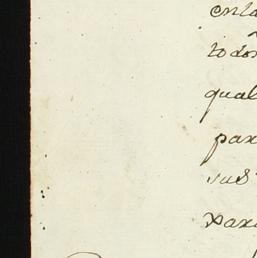 enla
todos
qual
par
sus
Para